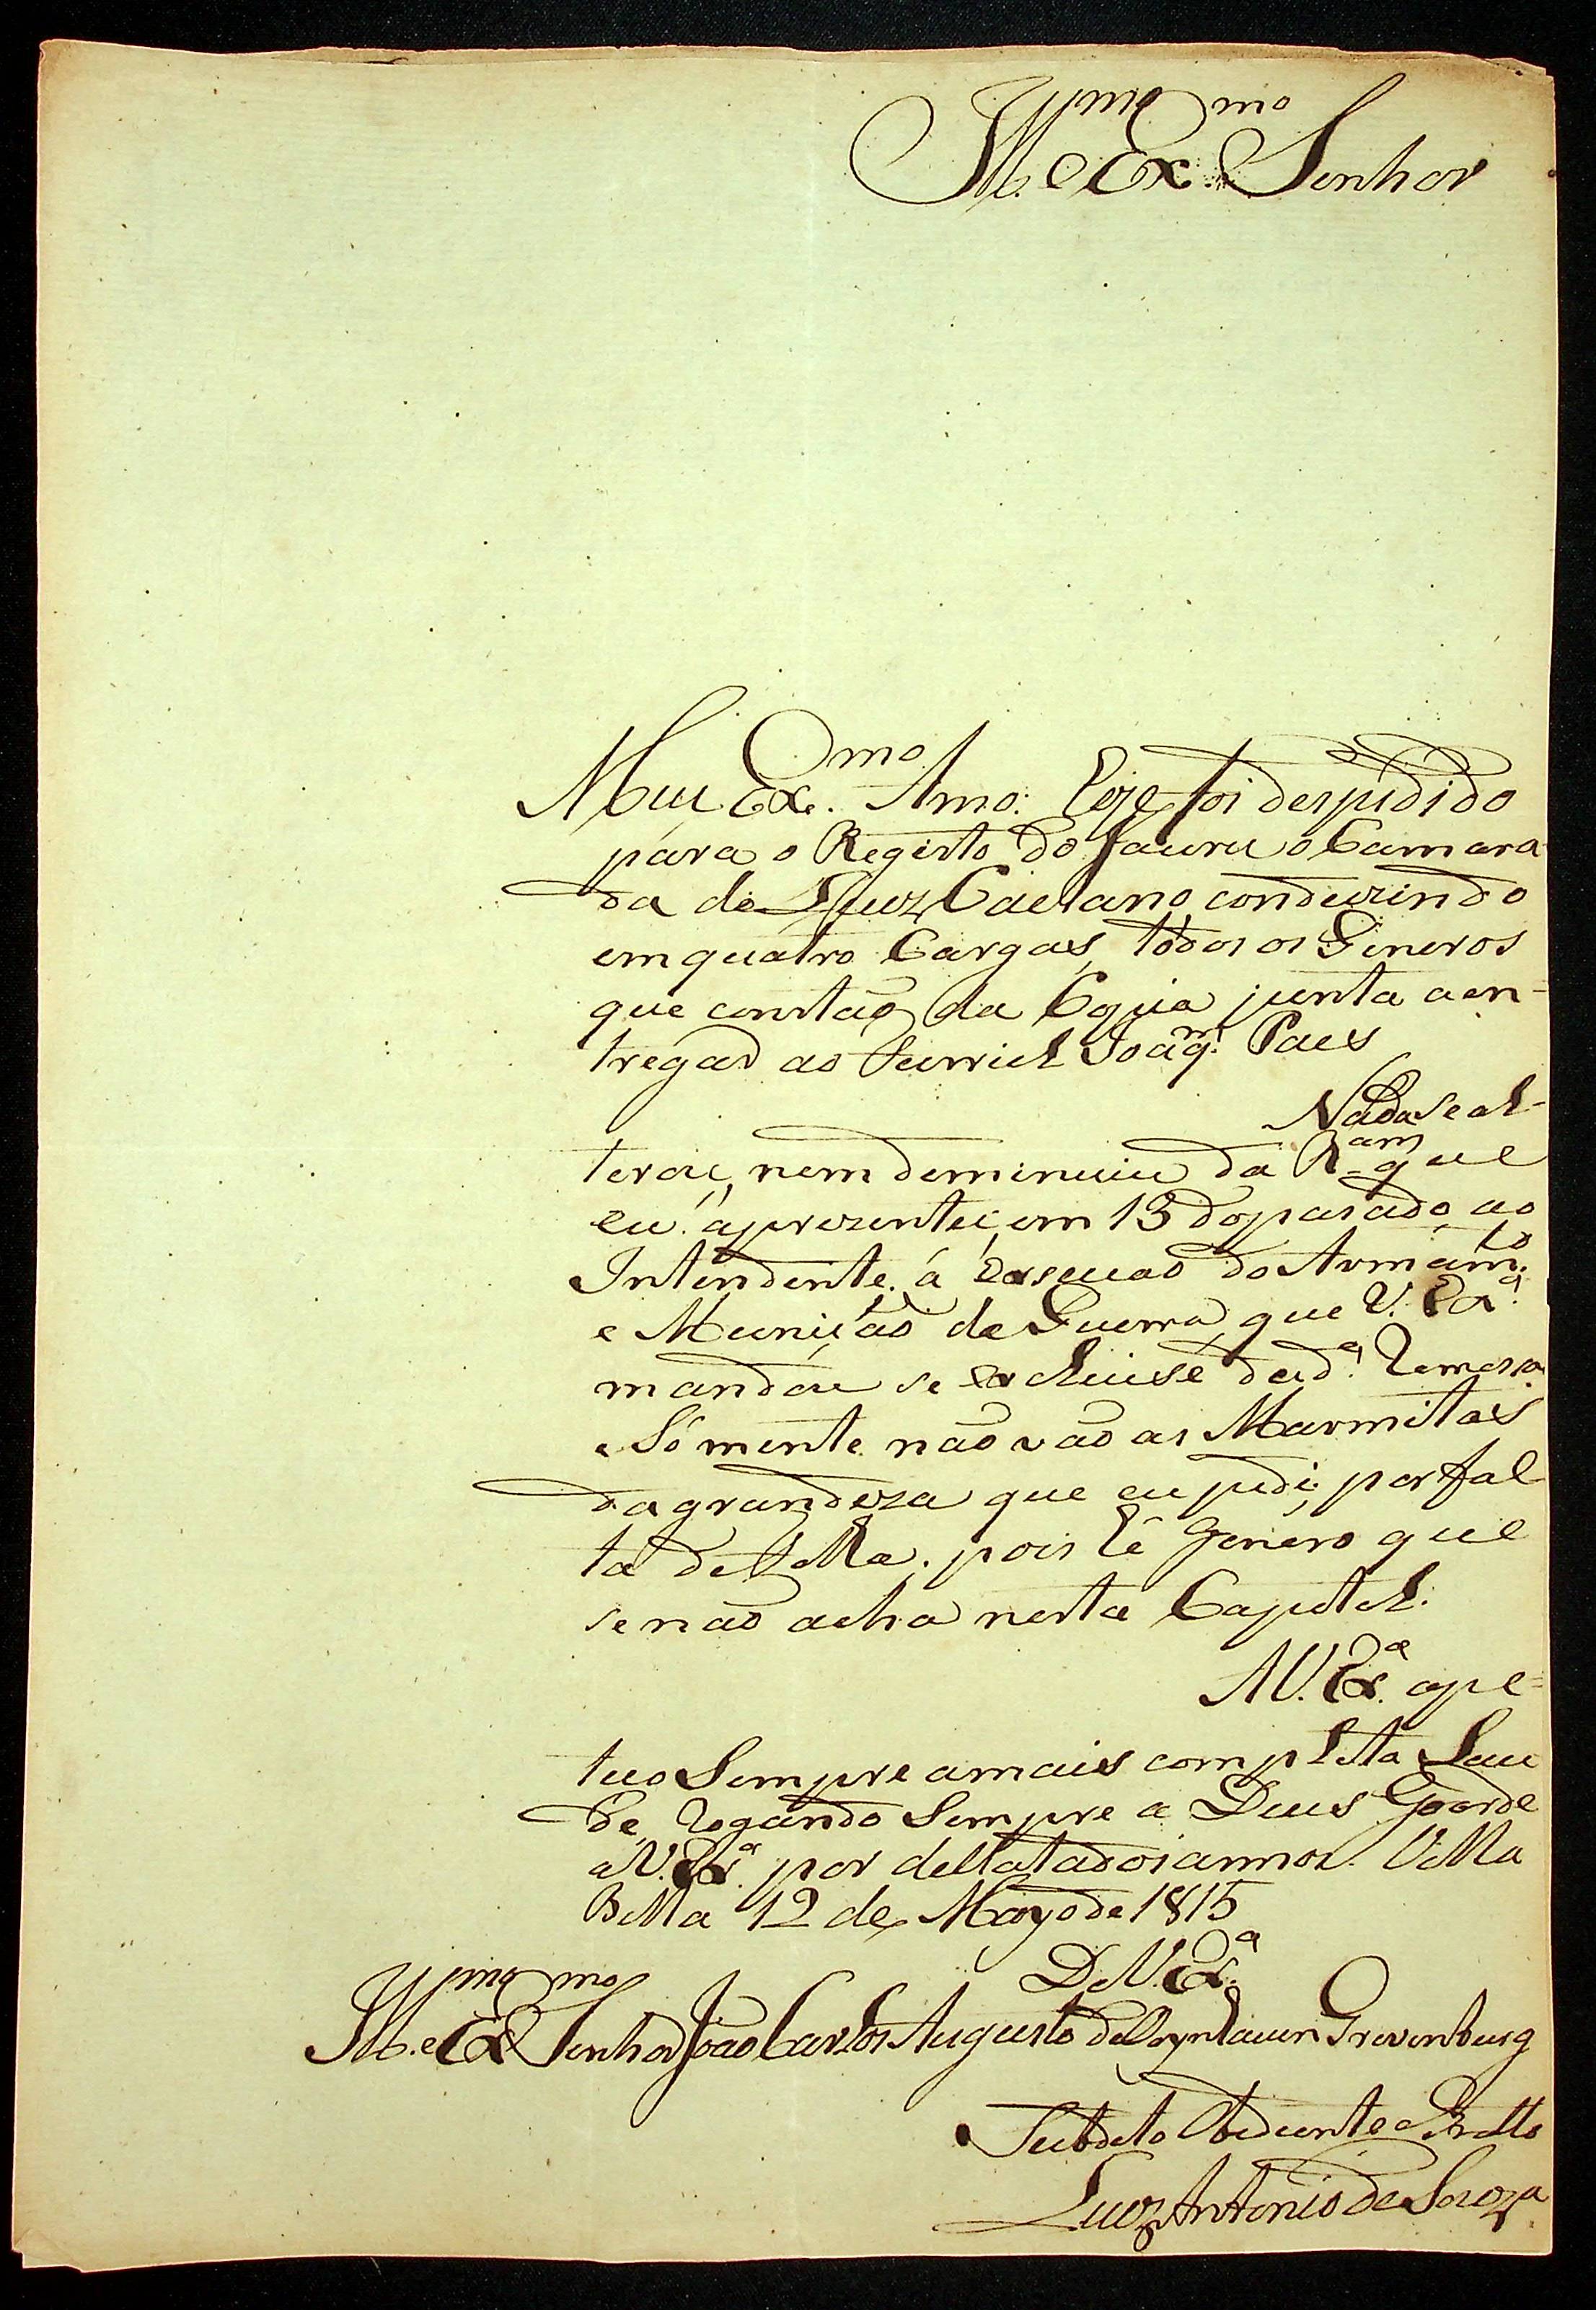 Ill.mo e Ex.mo Senhor
Meu Ex.mo Amo. Hoje foi despidido
para o Registo do Jauru o Camara
da de Luiz Caetano, conduzindo
em quatro Cargas, todos os Generos
que constão da Copia junta a en-
tregar ao Furriel Joaq.m Paes
Nada se al-
terou, nem deminuiu da R.am que
eu aprezentei, em 13 do pasado ao
Intendente, á exseção do Armam.to
e Munição de Guerra, que V. Ex.a
mandou se excluise da d.a Remesa
e Sómente não vão as Marmitas
da grandeza que eu pedi, por fal
ta della. pois hé genero que
se não acha nesta Capital.
A V. Ex.a ape-
teço Sempre a mais completa Sau
de, rogando Sempre a Deus Goarde
a V. Ex.a por dellatados annos. Villa
Bella 12 de Mayo de 1815
De V. Ex.a
Ill.mo e Ex.mo Senhor João Carlos Augusto de Oeynhausen Grevenburg
Subdito Obediente e
Luiz Antonio de Souza